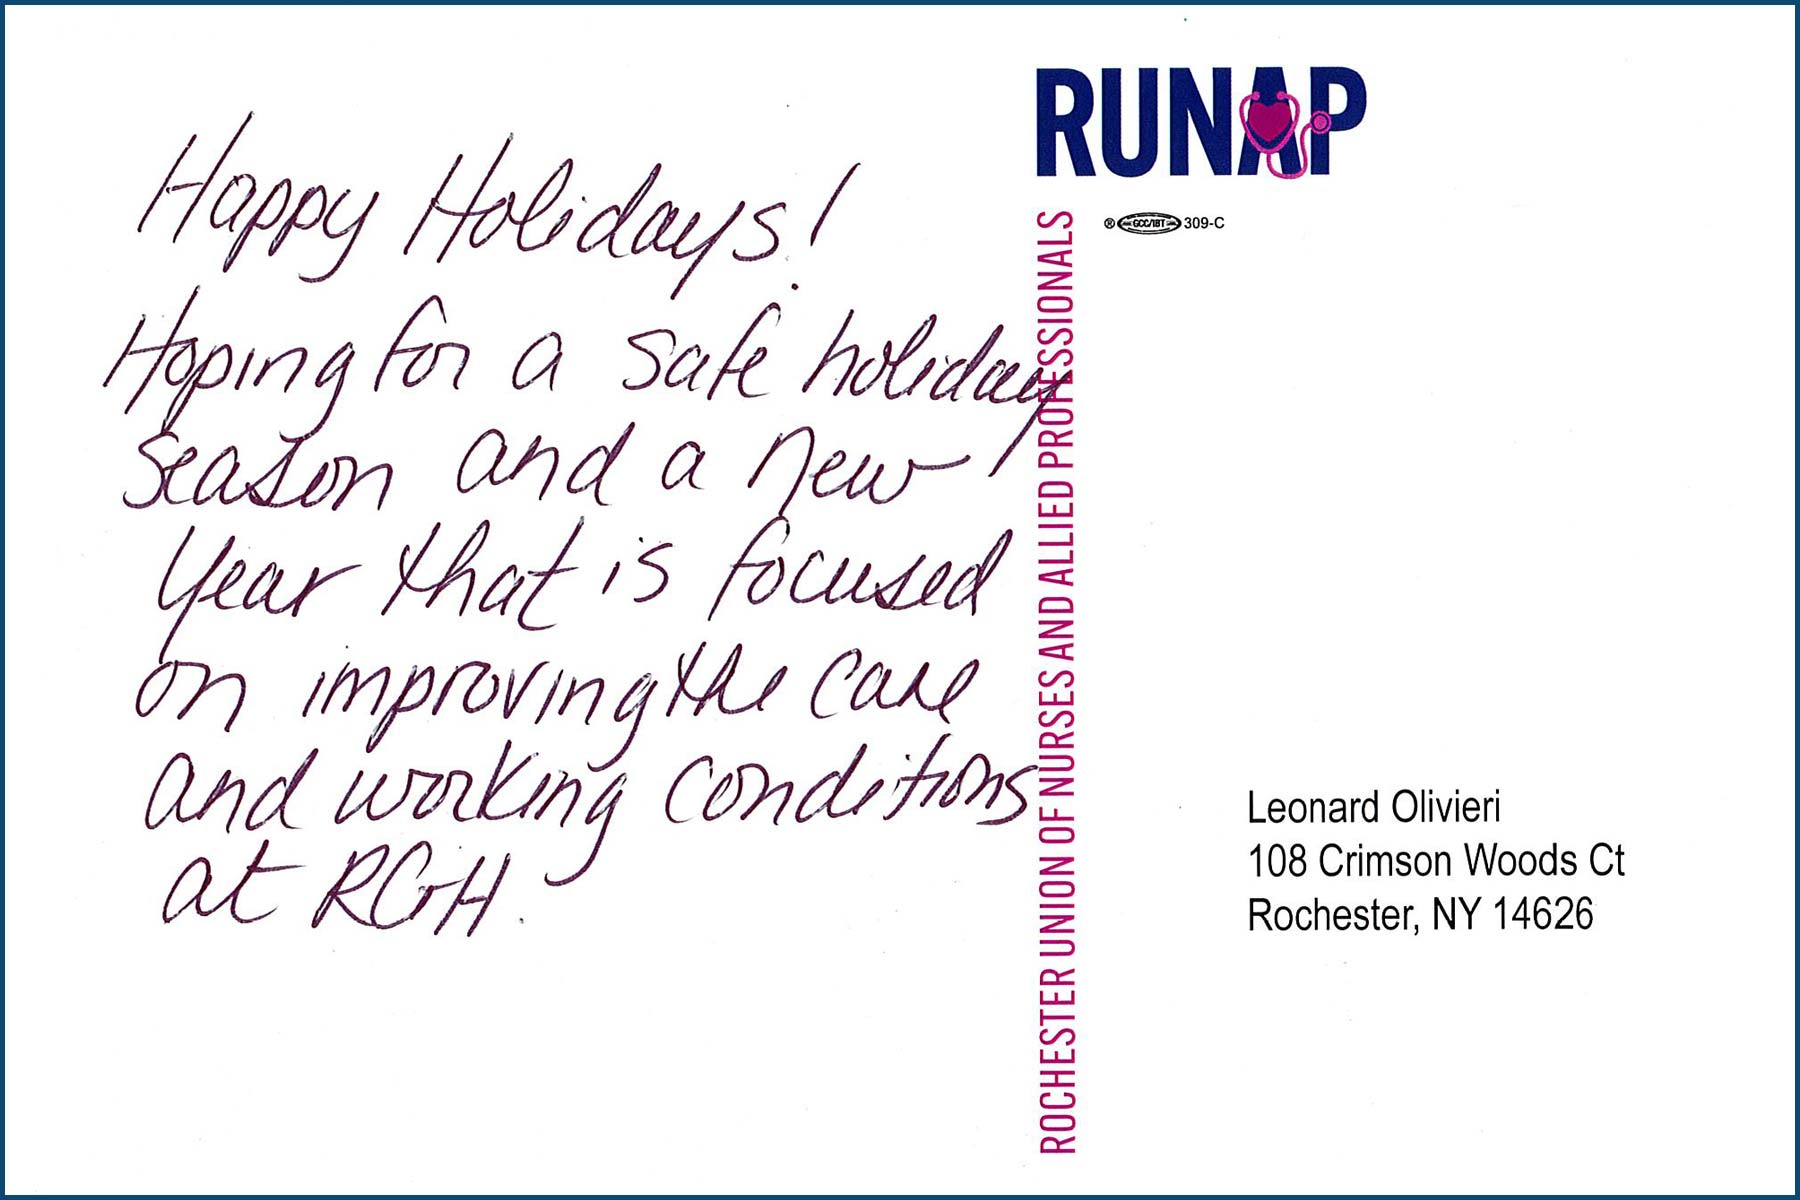 Happy Holidays!
Hoping for a safe holiday
season and a new
year that is focused
on improving the care
and working conditions
at RGH.
RUNAP
® GCC/IBT 309-C
ROCHESTER UNION OF NURSES AND ALLIED PROFESSIONALS
Leonard Olivieri
108 Crimson Woods Ct
Rochester, NY 14626